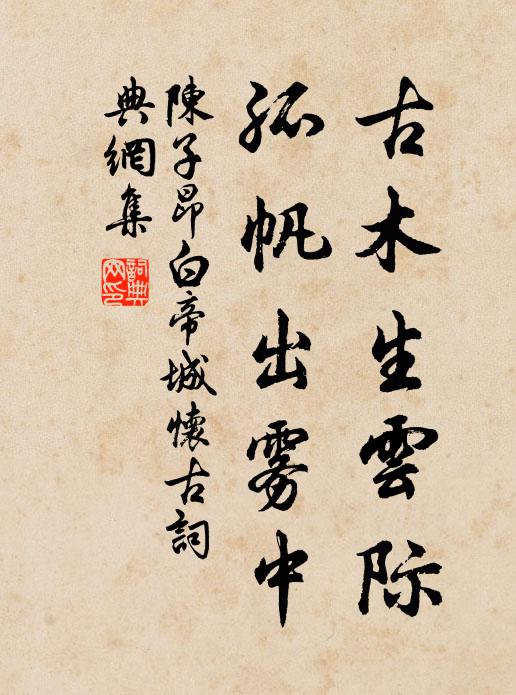 古木生雲际
孤帆出雾中
陳子昂白帝城懷古詞
典網集
詞典网印